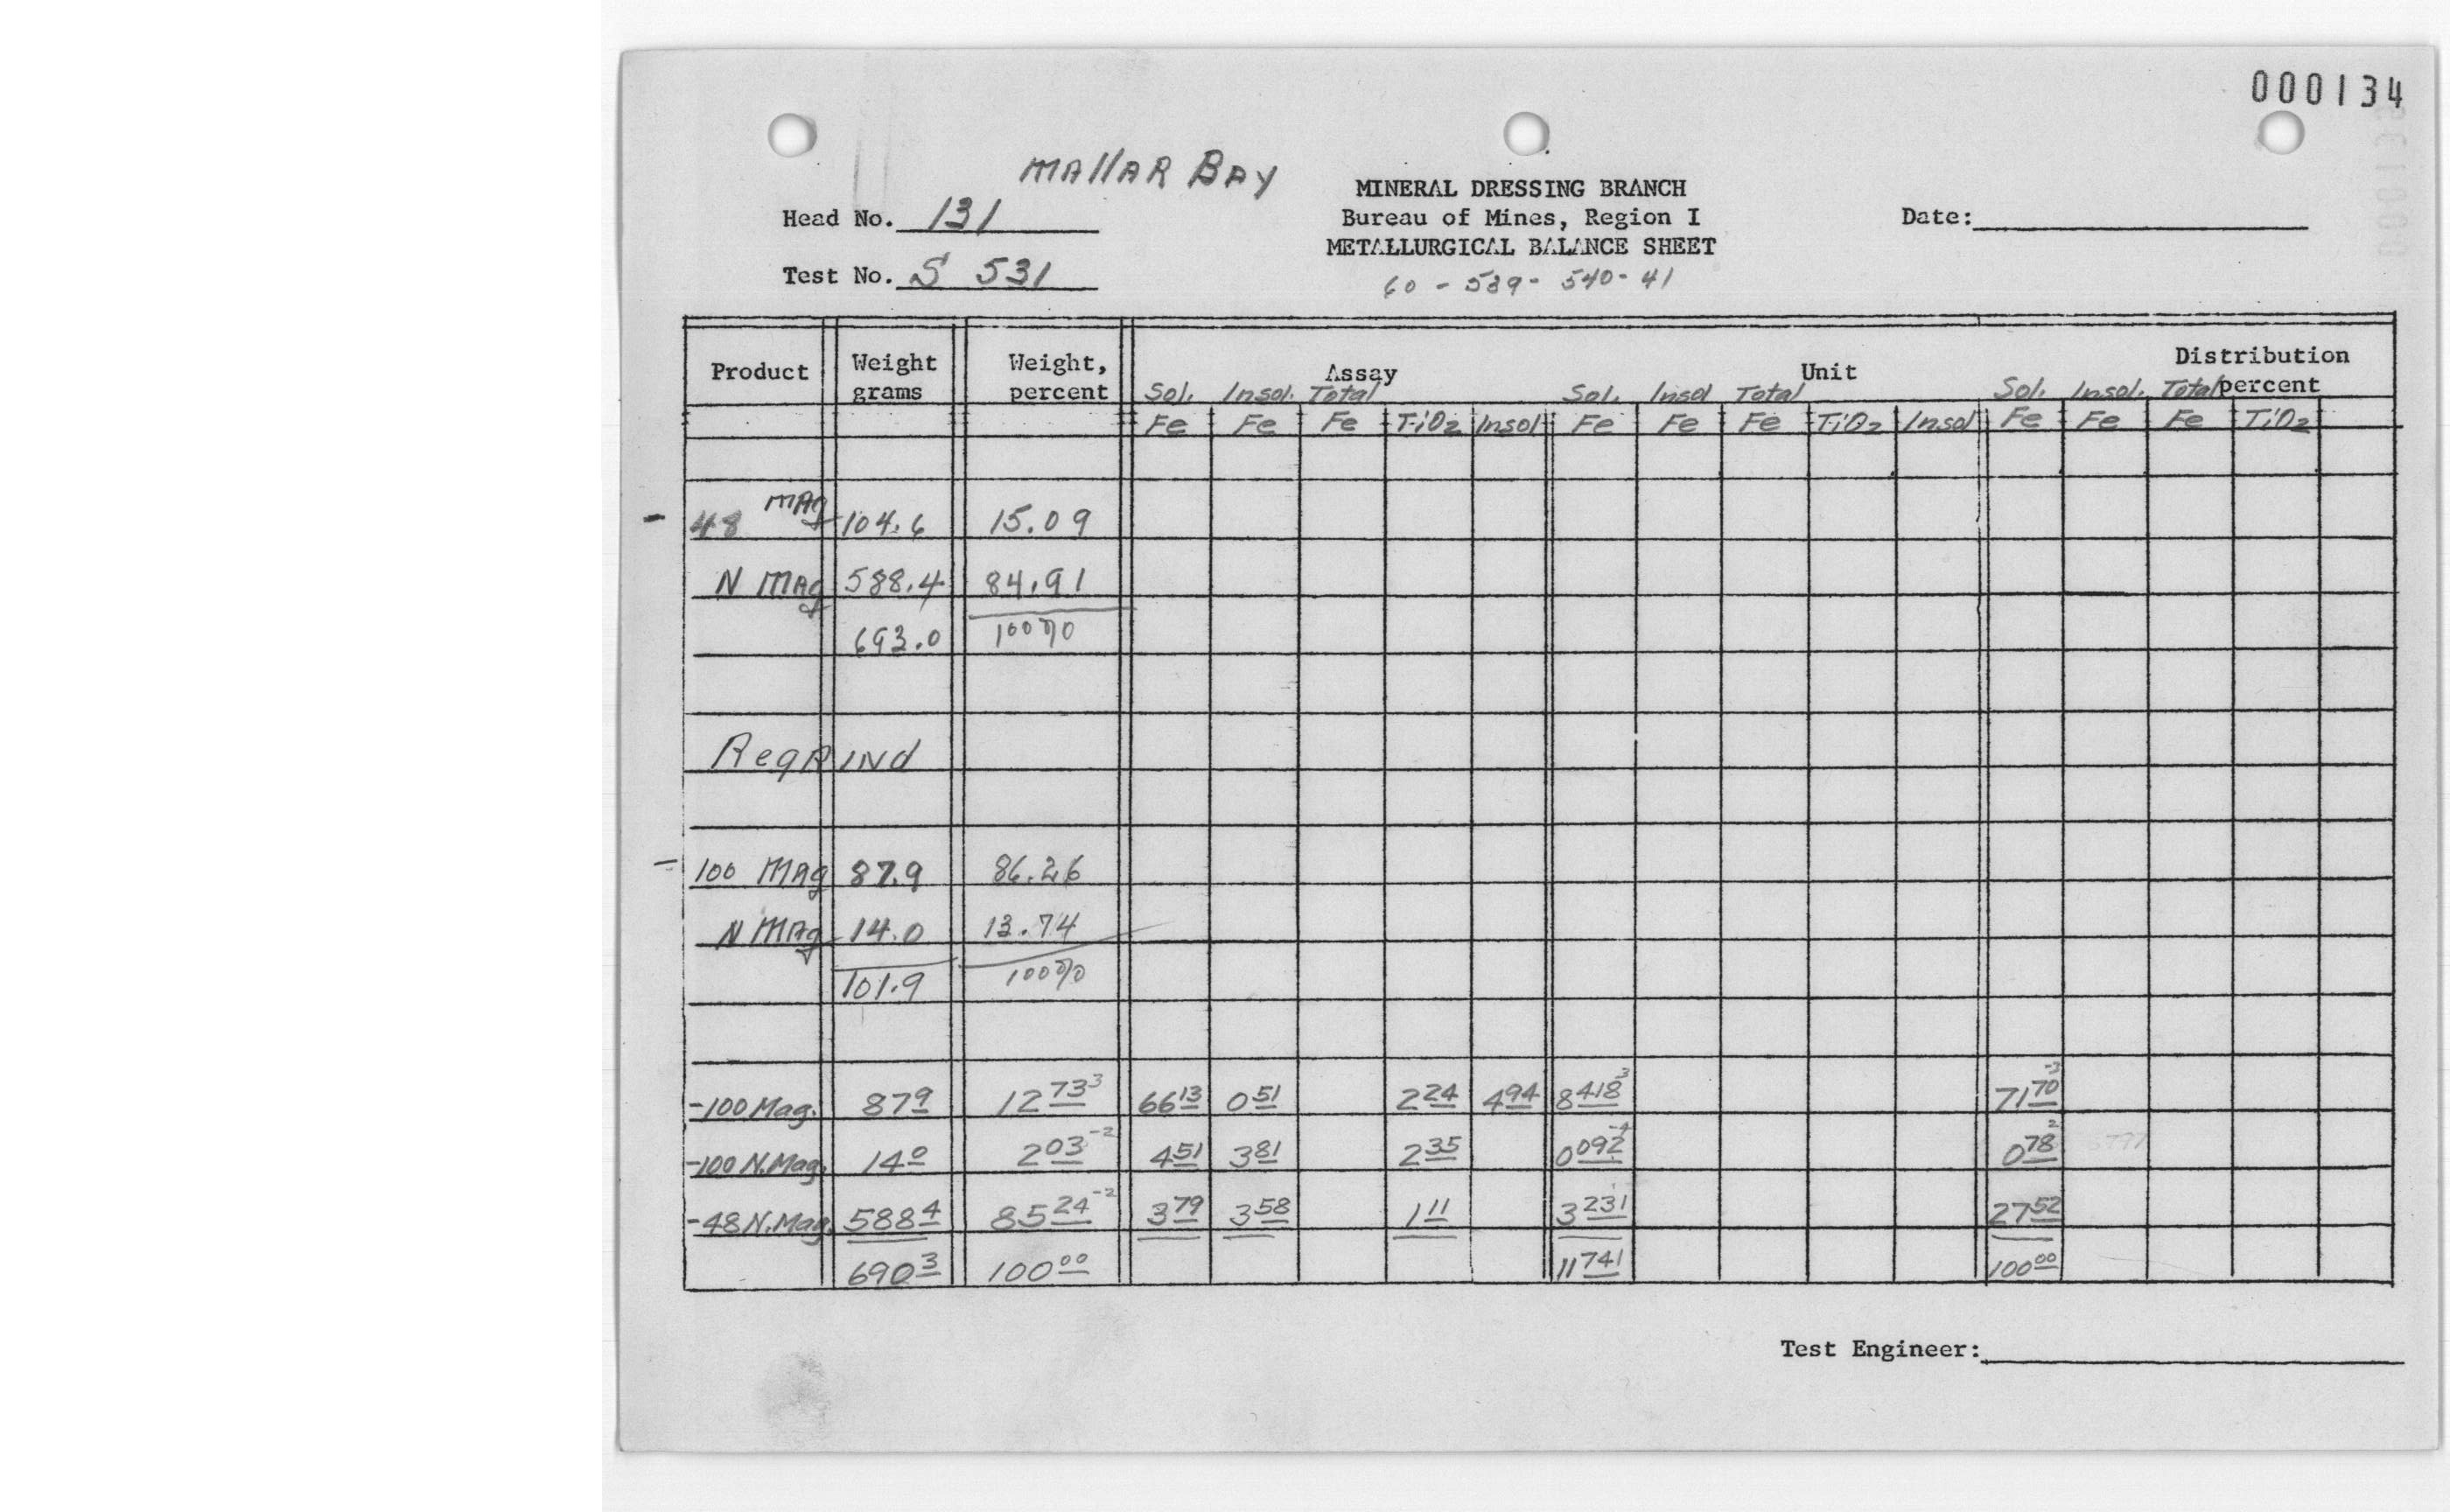 000134
MAllAR BAy
MINERAL DRESSING BRANCH
Head No. 131
Bureau of Mines, Region I
Date:
METALLURGICAL BALANCE SHEET
Test No. S 531
60 - 539 - 540 - 41
Product Weight grams Weight, percent Assay Unit Distribution percent
Sol. Insol. Total Sol. Insol Total Sol. Insol. Total
Fe Fe Fe TiO2 Insol Fe Fe Fe TiO2 Insol Fe Fe Fe TiO2
- 48 MAg 104.6 15.09
N MAg 588.4 84.91
693.0 100%
RegRINd
- 100 MAg 87.9 86.26
N MAg 14.0 13.74
101.9 100%
-100 Mag. 87 9 12 73 3 66 13 0 51 2 24 4 94 8 418 3 71 70 -3
-100 N.Mag. 14 0 2 03 -2 4 51 3 81 2 35 0 092 -4 0 78 2
-48 N.Mag. 588 4 85 24 -2 3 79 3 58 1 11 3 231 27 52
690 3 100 00 11 741 100 00
Test Engineer: